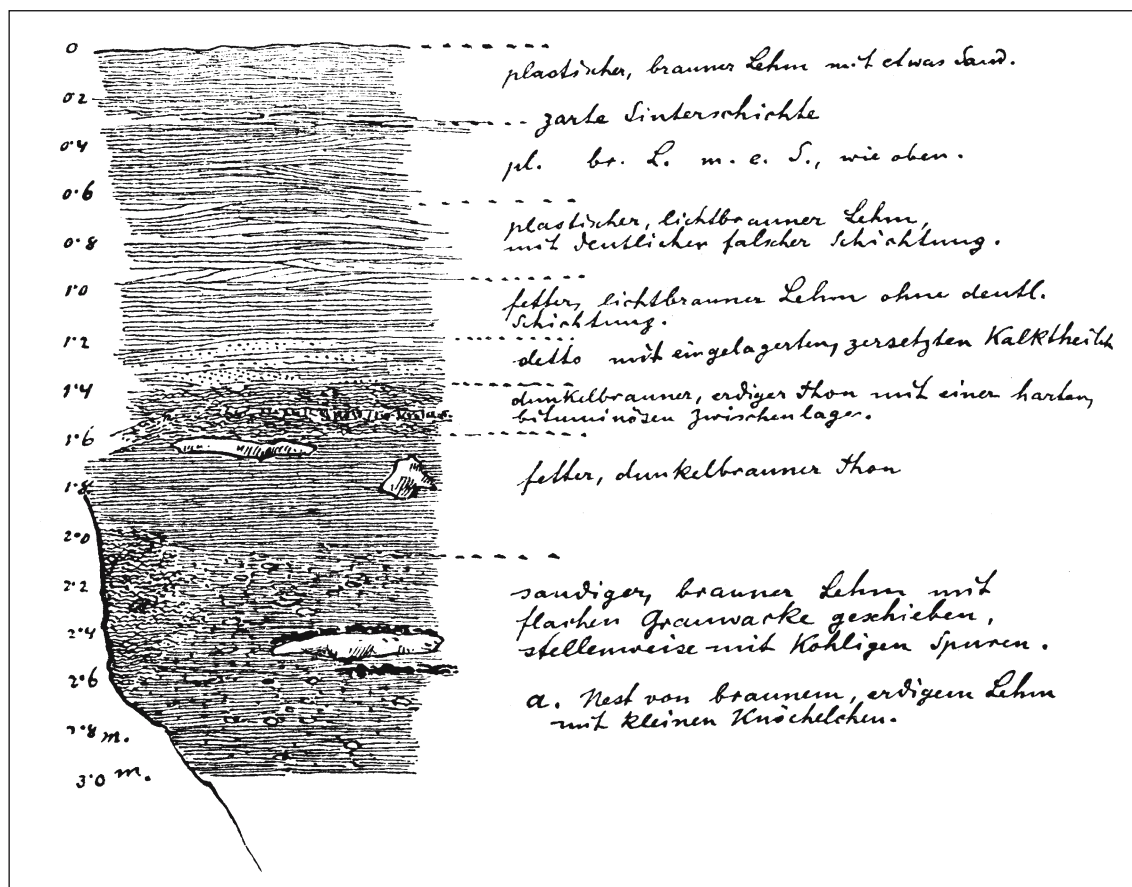 0
plastischer, brauner Lehm mit etwas Sand.
0·2
zarte Sinterschichte
0·4
pl. br. L. m. e. S., wie oben.
0·6
plastischer, lichtbrauner Lehm,
0·8
mit deutlicher falscher Schichtung.
1·0
fetter, lichtbrauner Lehm ohne deutl.
Schichtung.
1·2
detto mit eingelagerten, zersetzten Kalktheilch
1·4
dunkelbrauner, erdiger Thon mit einer harten,
bituminösen Zwischenlage.
1·6
fetter, dunkelbrauner Thon
1·8
2·0
2·2
sandiger, brauner Lehm mit
flachen Grauwacke geschieben,
2·4
stellenweise mit Kohligen Spuren.
2·6
a. Nest von braunem, erdigem Lehm
mit kleinen Knöchelchen.
2·8 m.
3·0 m.